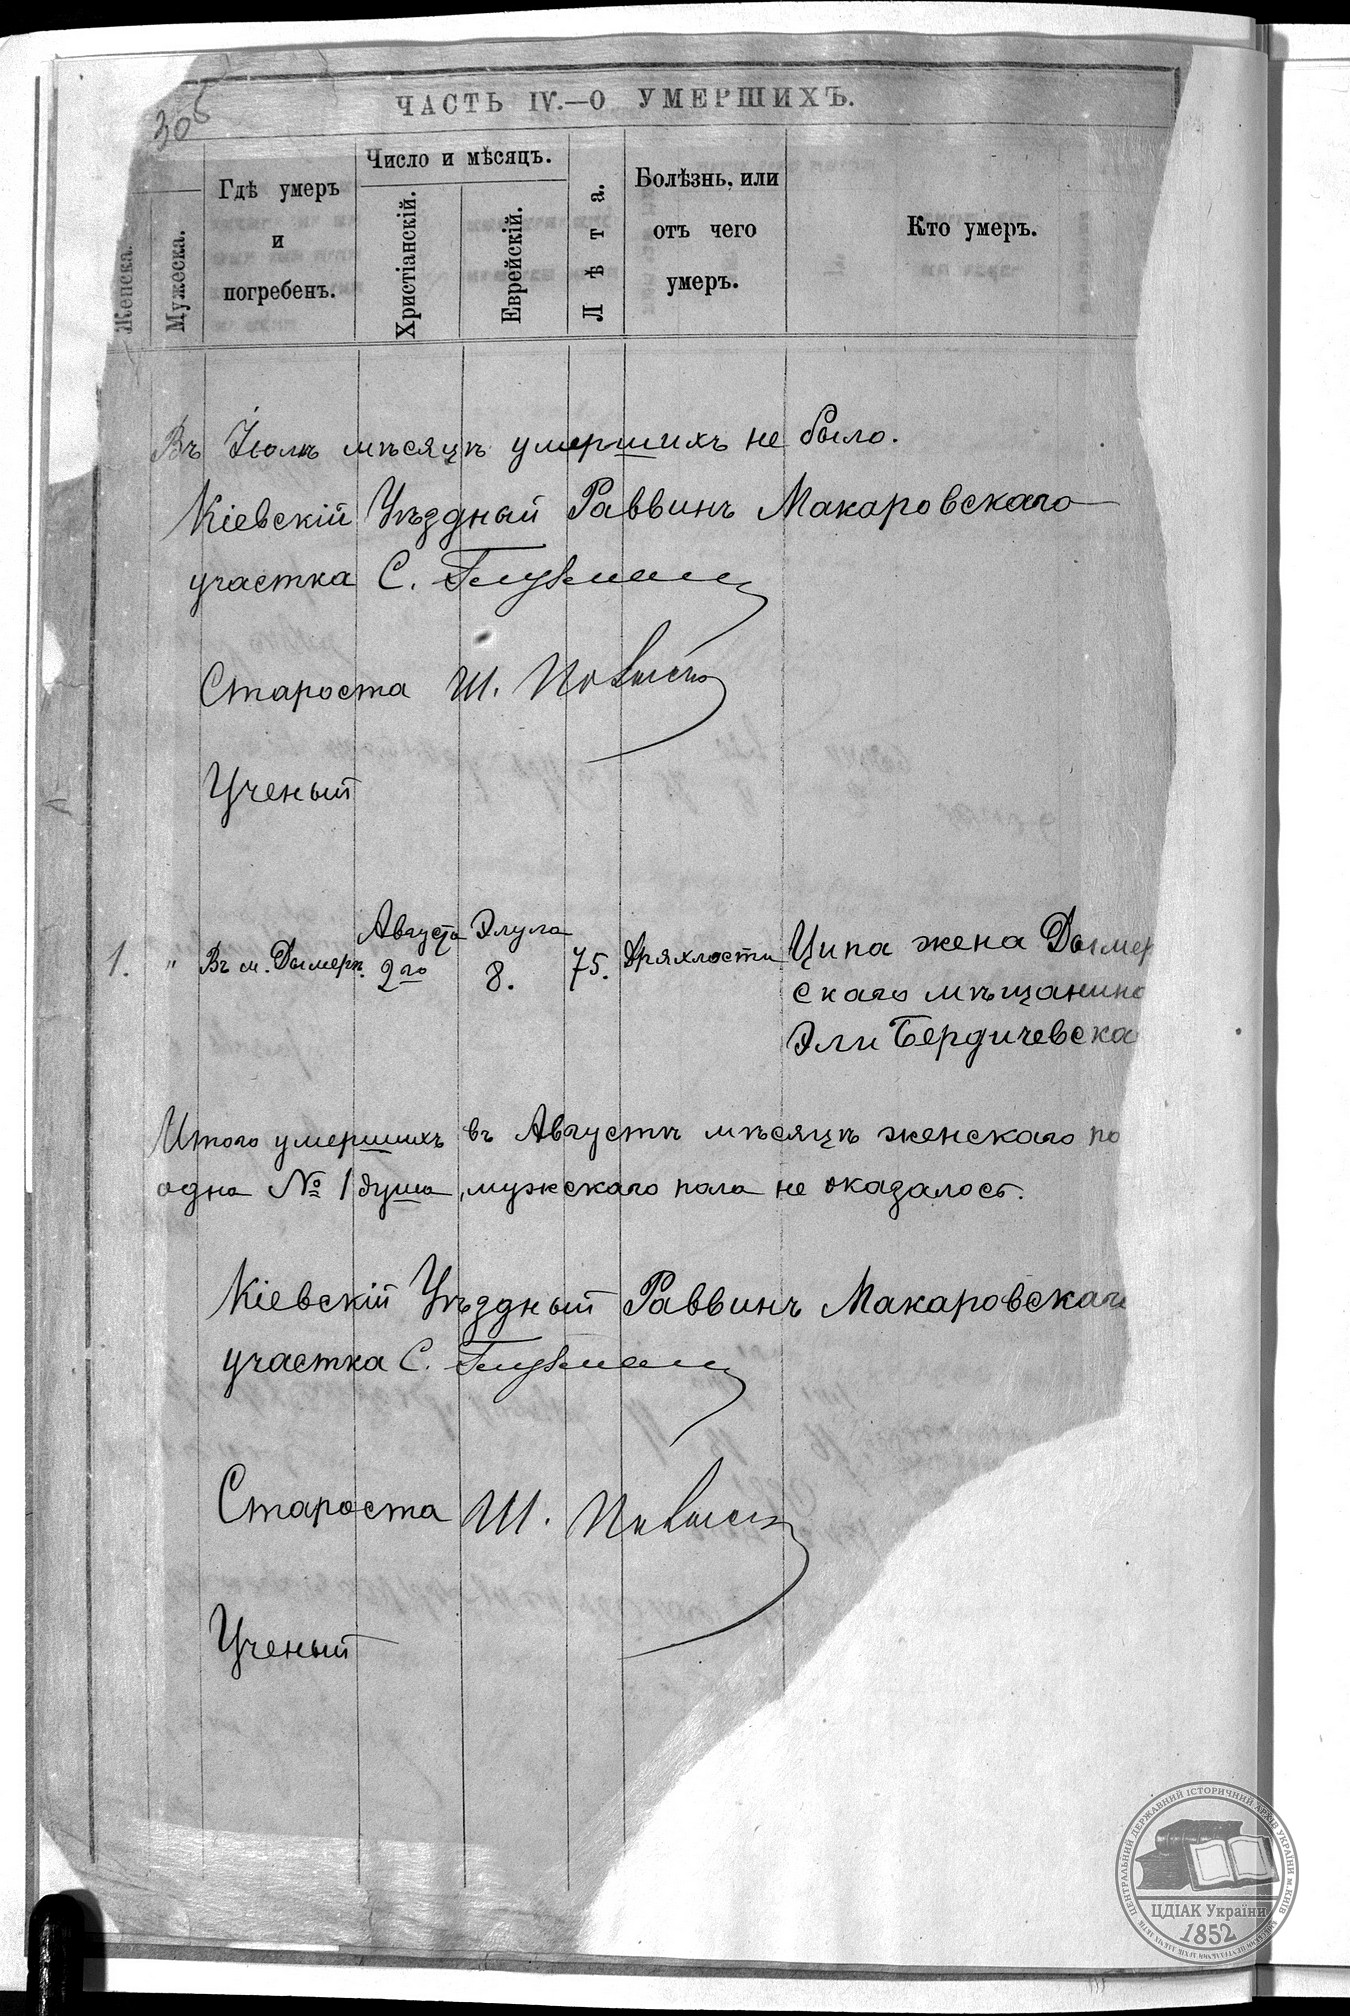 305
ЧАСТЬ IV.—О УМЕРШИХЪ.
Женска.
Мужеска.
Гдѣ умеръ
и
погребенъ.
Число и мѣсяцъ.
Христіанскій.
Еврейскій.
Лѣта.
Болѣзнь, или
отъ чего
умеръ.
Кто умеръ.
Въ Іюлѣ мѣсяцѣ умершихъ не было.
Кіевскій Уѣздный Раввинъ Макаровскаго
участка С.
Староста Ш.
Ученый
1. " Въ м. Дымерѣ. Августа 2го Элула 8. 75. Дряхлости Ципа жена Дымер
скаго мѣщанина
Эли Бердичевска
Итого умершихъ въ Августѣ мѣсяцѣ женскаго по
одна № 1 душа, мужскаго пола не оказалось.
Кіевскій Уѣздный Раввинъ Макаровскаго
участка С.
Староста Ш.
Ученый
ЦЕНТРАЛЬНИЙ ДЕРЖАВНИЙ ІСТОРИЧНИЙ АРХІВ УКРАЇНИ м.КИЇВ
ЦДІАК України
1852